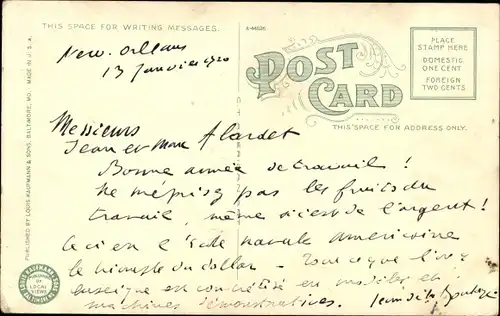 THIS SPACE FOR WRITING MESSAGES.
A-44626
POST CARD
PLACE
STAMP HERE
DOMESTIC
ONE CENT
FOREIGN
TWO CENTS
THIS SPACE FOR ADDRESS ONLY.
PUBLISHED BY LOUIS KAUFMANN & SONS, BALTIMORE, MD. MADE IN U.S.A.
LOUIS KAUFMANN & SONS BALTIMORE MD.
PUBLISHERS
OF
LOCAL
VIEWS
New. Orleans
13 Janvier 1920
Messieurs
Jean et Max Alardet
Bonne année de travail !
Ne méprisez pas les fruits du
travail, même si c'est de l'argent !
Ceci est l'École navale américaine
le triomphe du dollar - Tout ce que l'on y
enseigne est concrétisé en modèles et
machines démonstratives.